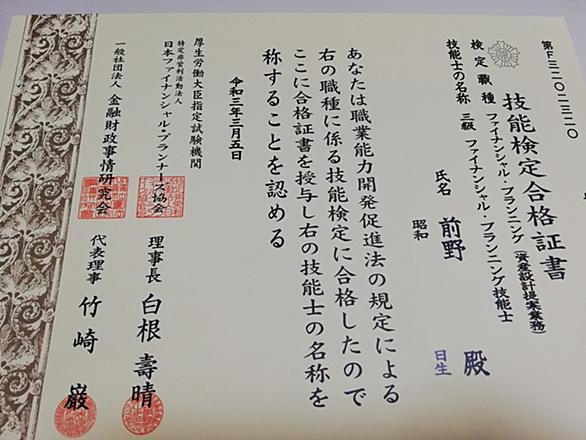 第F三二〇二三二〇
技能検定合格証書
検定職種 ファイナンシャル・プランニング(資産設計提案業務)
技能士の名称 三級 ファイナンシャル・プランニング技能士
氏名 前野 殿
昭和 日生
あなたは職業能力開発促進法の規定による
右の職種に係る技能検定に合格したので
ここに合格証書を授与し右の技能士の名称を
称することを認める
令和三年三月五日
厚生労働大臣指定試験機関
特定非営利活動法人
日本ファイナンシャル・プランナーズ協会 理事長 白根壽晴
一般社団法人 金融財政事情研究会 代表理事 竹崎巌